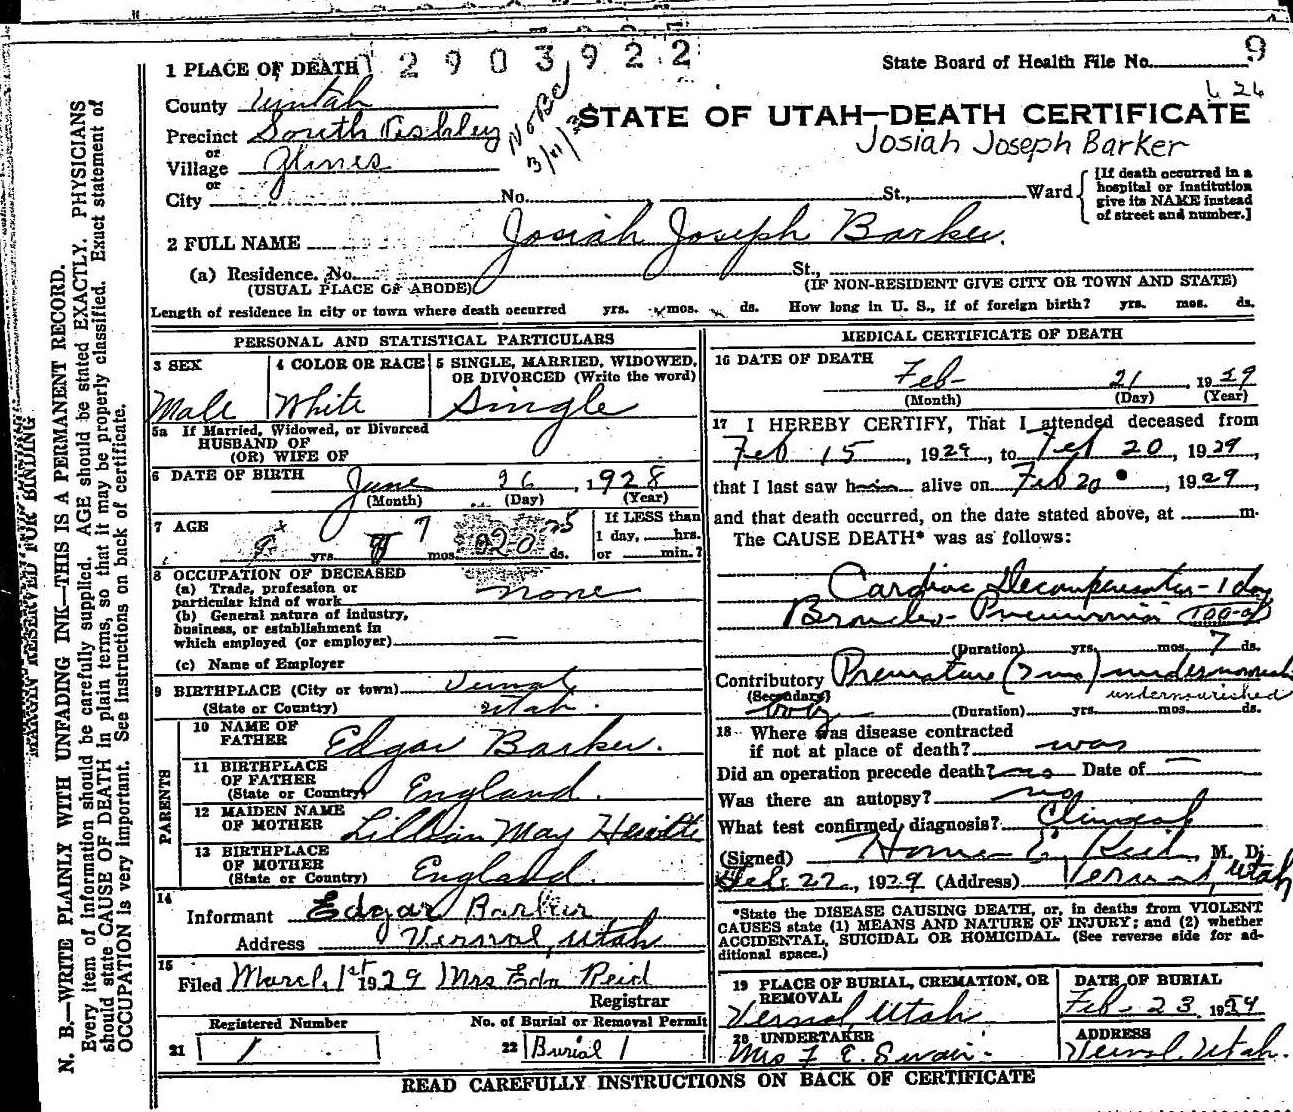 2903922
State Board of Health File No. 9
STATE OF UTAH—DEATH CERTIFICATE
Josiah Joseph Barker
1 PLACE OF DEATH
County Uintah
Precinct South Ashley
or
Village Glines
or
City No. St., Ward
[If death occurred in a
hospital or institution
give its NAME instead
of street and number.]
2 FULL NAME Josiah Joseph Barker.
(a) Residence. No. St.,
(USUAL PLACE OF ABODE) (IF NON-RESIDENT GIVE CITY OR TOWN AND STATE)
Length of residence in city or town where death occurred yrs. mos. ds. How long in U. S., if of foreign birth? yrs. mos. ds.
PERSONAL AND STATISTICAL PARTICULARS
3 SEX
Male
4 COLOR OR RACE
White
5 SINGLE, MARRIED, WIDOWED,
OR DIVORCED (Write the word)
Single
5a If Married, Widowed, or Divorced
HUSBAND OF
(OR) WIFE OF
6 DATE OF BIRTH June 26, 1928
(Month) (Day) (Year)
7 AGE yrs. 7 mos. 25 ds.
If LESS than
1 day, hrs.
or min.?
8 OCCUPATION OF DECEASED
(a) Trade, profession or
particular kind of work none
(b) General nature of industry,
business, or establishment in
which employed (or employer) —
(c) Name of Employer
9 BIRTHPLACE (City or town) Vernal
(State or Country) Utah.
PARENTS
10 NAME OF
FATHER Edgar Barker.
11 BIRTHPLACE
OF FATHER
(State or Country) England.
12 MAIDEN NAME
OF MOTHER Lillian May
13 BIRTHPLACE
OF MOTHER
(State or Country) England.
14
Informant Edgar Barker
Address Vernal, Utah
15
Filed March 1st 1929 Mrs Eda Reid
Registrar
Registered Number
21 1
No. of Burial or Removal Permit
22 Burial 1
MEDICAL CERTIFICATE OF DEATH
16 DATE OF DEATH
Feb- 21, 1929
(Month) (Day) (Year)
17 I HEREBY CERTIFY, That I attended deceased from
Feb 15, 1929, to Feb 20, 1929,
that I last saw him alive on Feb 20, 1929,
and that death occurred, on the date stated above, at m.
The CAUSE DEATH* was as follows:
Cardiac Decompensation - 1 day
Broncho- Pneumonia
(Duration) yrs. mos. 7 ds.
Contributory Premature (2 mo) undernourished
undernourished
(Secondary) boy (Duration) yrs. mos. ds.
18 Where was disease contracted
if not at place of death? was
Did an operation precede death? no Date of —
Was there an autopsy? no
What test confirmed diagnosis? Clinical
(Signed) Homer E. Rich, M. D.
Feb. 22, 1929 (Address) Vernal, Utah
*State the DISEASE CAUSING DEATH, or, in deaths from VIOLENT
CAUSES state (1) MEANS AND NATURE OF INJURY; and (2) whether
ACCIDENTAL, SUICIDAL OR HOMICIDAL. (See reverse side for ad-
ditional space.)
19 PLACE OF BURIAL, CREMATION, OR
REMOVAL
Vernal, Utah
DATE OF BURIAL
Feb. 23 1929
20 UNDERTAKER
Mrs F. E. Swain.
ADDRESS
Vernal, Utah.
READ CAREFULLY INSTRUCTIONS ON BACK OF CERTIFICATE
MARGIN RESERVED FOR BINDING
N. B.—WRITE PLAINLY WITH UNFADING INK—THIS IS A PERMANENT RECORD.
Every item of information should be carefully supplied. AGE should be stated EXACTLY. PHYSICIANS
should state CAUSE OF DEATH in plain terms, so that it may be properly classified. Exact statement of
OCCUPATION is very important. See instructions on back of certificate.